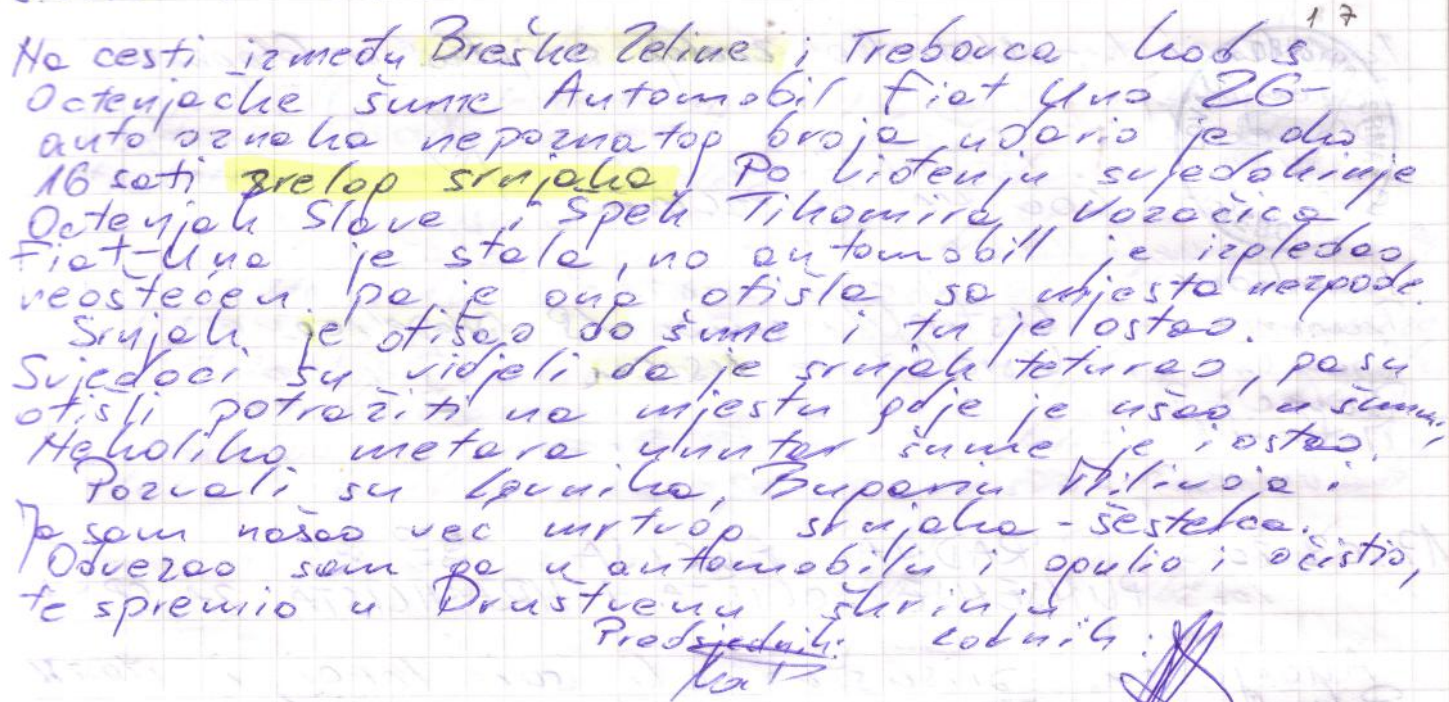 17
Na cesti između Breške Zeline i Trebovca kod
Octenjačke šume Automobil Fiat Uno ZG-
auto oznaka nepoznatog broja udario je oko
16 sati zrelog srnjaka. Po viđenju svjedokinje
Octenjak Slave i Špek Tihomira Vozačica
Fiat-Una je stala, no automobil je izgledao
neoštećen pa je ona otišla sa mjesta nezgode.
Srnjak je otišao do šume i tu je ostao.
Svjedoci su vidjeli da je srnjak teturao, pa su
otišli potražiti na mjestu gdje je ušao u šumu,
Nekoliko metara unutar šume je i ostao.
Pozvali su Lovnika, Milivoja.
Ja sam našao već mrtvog srnjaka - šesterca.
Odvezao sam ga u automobilu i ogulio i očistio,
te spremio u Društvenu škrinju.
Predsjednik: Lovnik: